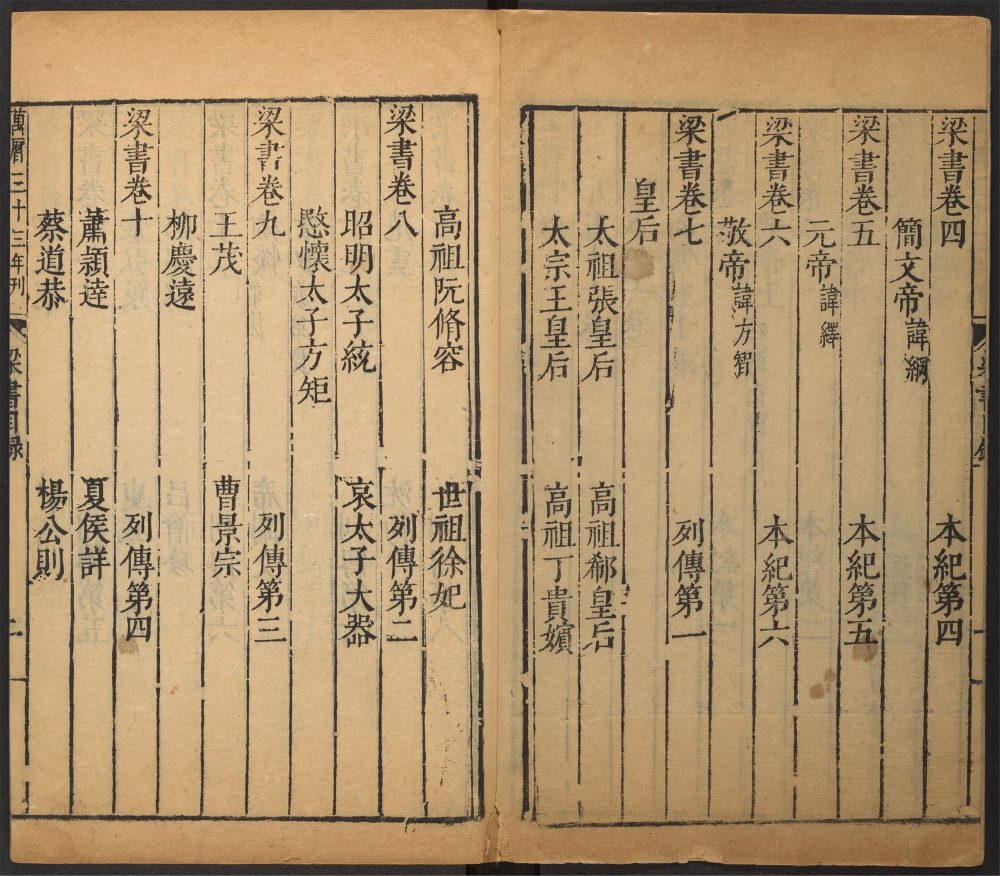 梁書卷四 本紀第四
簡文帝諱綱
梁書卷五 本紀第五
元帝諱繹
梁書卷六 本紀第六
敬帝諱方智
梁書卷七 列傳第一
皇后
太祖張皇后 高祖郗皇后
太宗王皇后 高祖丁貴嬪
高祖阮脩容 世祖徐妃
梁書卷八 列傳第二
昭明太子統 哀太子大器
愍懷太子方矩
梁書卷九 列傳第三
王茂 曹景宗
柳慶遠
梁書卷十 列傳第四
蕭穎達 夏侯詳
蔡道恭 楊公則
萬曆三十三年刊 梁書目録 二